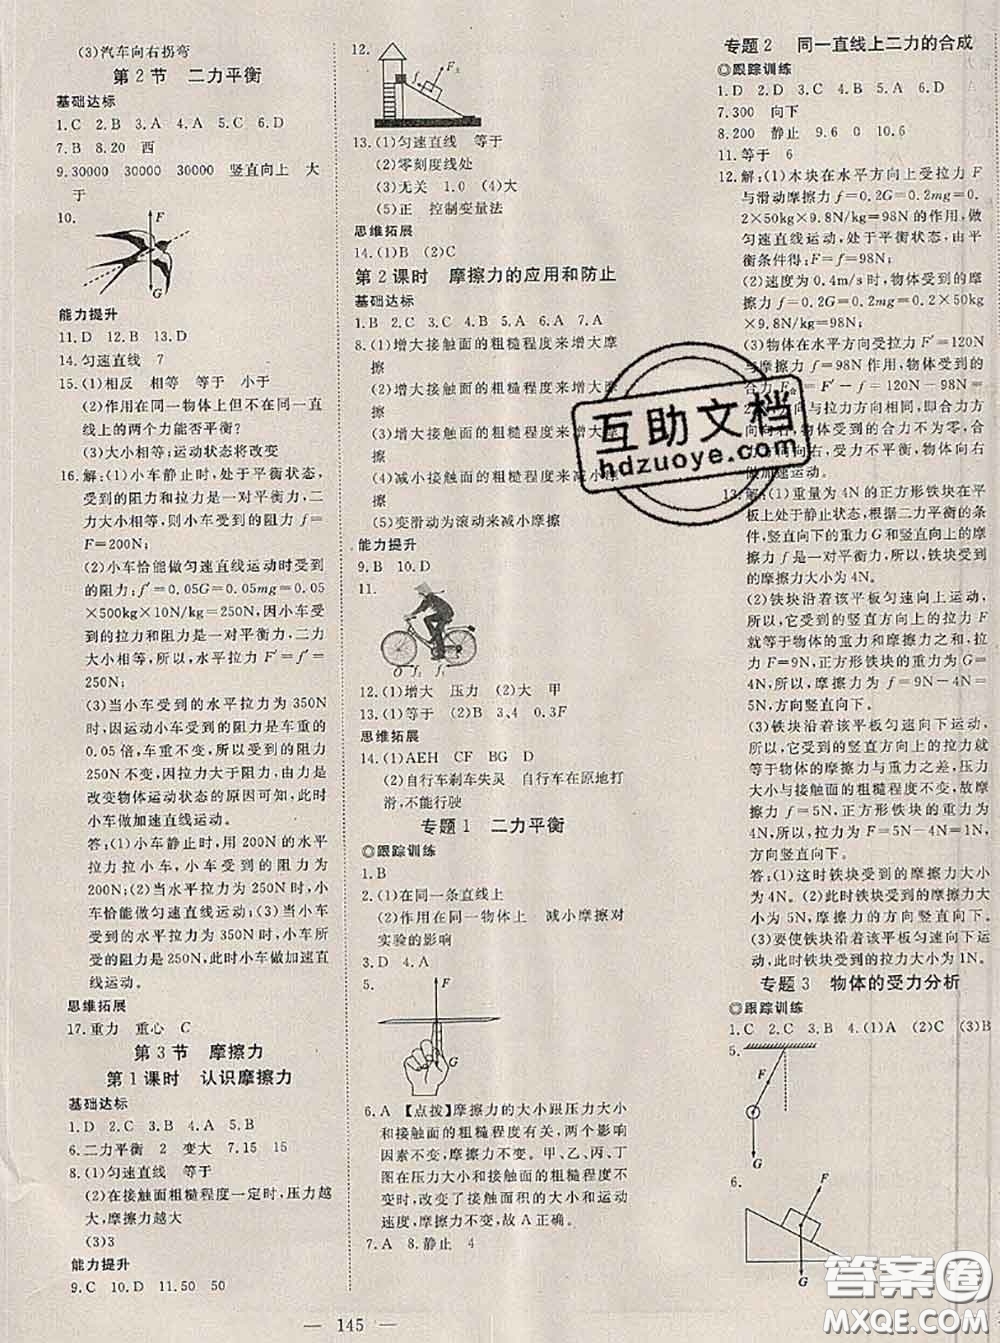 (3)汽车向右拐弯
第2节 二力平衡
基础达标
1.C 2.B 3.A 4.A 5.C 6.D
7.B 8.20 西
9.30000 30000 30000 竖直向上 大
于
10.
F
G
能力提升
11.D 12.B 13.D
14.匀速直线 7
15.(1)相反 相等 等于 小于
(2)作用在同一物体上但不在同一直
线上的两个力能否平衡?
(3)大小相等;运动状态将改变
16.解:(1)小车静止时,处于平衡状态,
受到的阻力和拉力是一对平衡力,二
力大小相等,则小车受到的阻力f=
F=200N;
(2)小车恰能做匀速直线运动时受到
的阻力:f′=0.05G=0.05mg=0.05
×500kg×10N/kg=250N,因小车受
到的拉力和阻力是一对平衡力,二力
大小相等,所以,水平拉力F′=f′=
250N;
(3)当小车受到的水平拉力为350N
时,因运动小车受到的阻力是车重的
0.05倍,车重不变,所以受到的阻力
250N不变,因拉力大于阻力,力是
改变物体运动状态的原因可知,此时
小车做加速直线运动。
答:(1)小车静止时,用200N的水平
拉力拉小车,小车受到的阻力是
200N;(2)当水平拉力为250N时,小
车恰能做匀速直线运动;(3)当小车
受到的水平拉力为350N时,小车所
受的阻力是250N,此时小车做加速直
线运动。
思维拓展
17.重力 重心 C
第3节 摩擦力
第1课时 认识摩擦力
基础达标
1.D 2.C 3.D 4.A 5.B
6.二力平衡 2 变大 7.15 15
8.(1)匀速直线 等于
(2)在接触面粗糙程度一定时,压力越
大,摩擦力越大
(3)3
能力提升
9.C 10.D 11.50 50
12.
F支
13.(1)匀速直线 等于
(2)零刻度线处
(3)无关 1.0 (4)大
(5)正 控制变量法
思维拓展
14.(1)B (2)C
第2课时 摩擦力的应用和防止
基础达标
1.B 2.C 3.C 4.D 5.C 6.A 7.A
8.(1)增大接触面的粗糙程度来增大摩
擦
(2)增大接触面的粗糙程度来增大摩
擦
(3)增大接触面的粗糙程度来增大摩
擦
(4)减小接触面的粗糙程度来减小摩
擦
(5)变滑动为滚动来减小摩擦
能力提升
9.B 10.D
11.
O f₂ f₁
12.(1)增大 压力 (2)大 甲
13.(1)等于 (2)B 3.4 0.3F
思维拓展
14.(1)AEH CF BG D
(2)自行车刹车失灵 自行车在原地打
滑,不能行驶
专题1 二力平衡
◎跟踪训练
1.B
2.(1)在同一条直线上
(2)作用在同一物体上 减小摩擦对
实验的影响
3.D 4.A
5.
F
G
6.A 【点拨】摩擦力的大小跟压力大小
和接触面的粗糙程度有关,两个影响
因素不变,摩擦力不变。甲、乙、丙、丁
图在压力大小和接触面的粗糙程度不
变时,改变了接触面积的大小和运动
速度,摩擦力不变,故A正确。
7.A 8.静止 4
专题2 同一直线上二力的合成
◎跟踪训练
1.D 2.D 3.C 4.C 5.A 6.D
7.300 向下
8.200 静止 9.6 0 10.6
11.等于 6
12.解:(1)木块在水平方向上受拉力F
与滑动摩擦力f=0.2G=0.2mg=0.
2×50kg×9.8N/kg=98N的作用,做
匀速直线运动,处于平衡状态,由平
衡条件得:F=f=98N;
(2)速度为0.4m/s时,物体受到的摩
擦力f=0.2G=0.2mg=0.2×50kg
×9.8N/kg=98N;
(3)物体在水平方向受拉力F′=120N
与摩擦力f=98N作用,物体受到的
合力F合=F′-f=120N-98N=
22N,方向与拉力方向相同,即合力方
向向右,物体受到的合力不为零,合
力方向向右,受力不平衡,物体向右
做加速运动。
13.解:(1)重量为4N的正方形铁块在平
板上处于静止状态,根据二力平衡的条
件,竖直向下的重力G和竖直向上的摩
擦力f是一对平衡力,所以,铁块受到
的摩擦力大小为4N。
(2)铁块沿着该平板匀速向上运动,
所以,它受到的竖直方向上的拉力F
就等于物体的重力和摩擦力之和,拉
力F=9N,正方形铁块的重力为G=
4N,所以,受到的摩擦力的大小为
5N,方向竖直向下。
(3)铁块沿着该平板匀速向下运动,
所以,它受到的竖直方向上的拉力F
等于摩擦力与重力之差,因为压力大
小和接触面的粗糙程度不变,故摩擦
力f=5N,正方形铁块的重力为
4N,所以,拉力为F=5N-4N=1N,
方向竖直向下。
答:(1)这时铁块受到的摩擦力大小
为4N;(2)此时铁块受到的摩擦力大
小为5N,摩擦力的方向竖直向下;
(3)要使铁块沿着该平板匀速向下运
动,所受到的拉力大小为1N。
专题3 物体的受力分析
◎跟踪训练
1.C 2.C 3.C 4.(1)A (2)C (3)B
5.
F
G
6.
F
G
— 145 —
互助文档
hdzuoye.com
答案圈
MXQE.COM